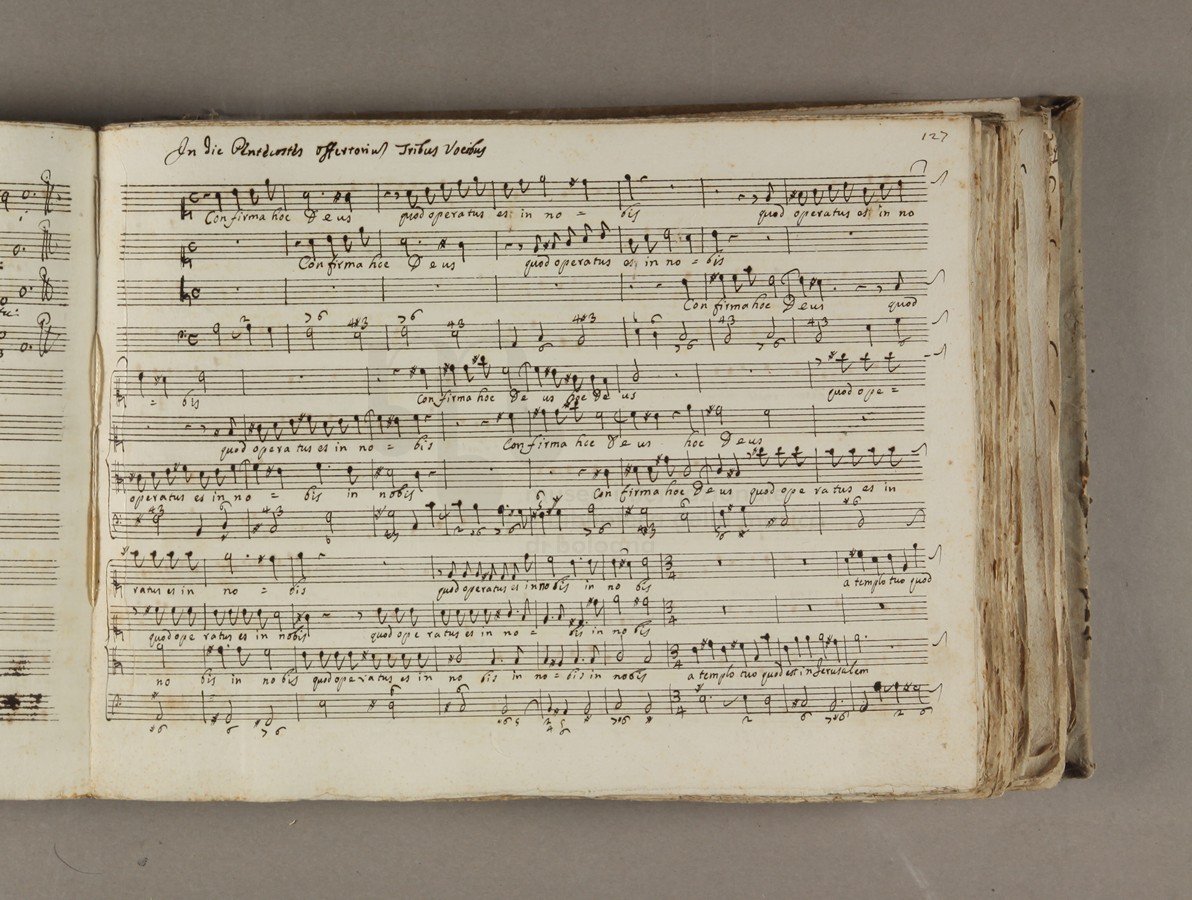 127
In die Pentecostes offertoriũ Tribus Vocibus
Confirma hoc Deus quod operatus es in no = bis quod operatus es in no
Confirma hoc Deus quod operatus es in no = bis
Confirma hoc Deus quod
= bis Confirma hoc De us hoc De us quod ope =
quod operatus es in no = bis Confirma hoc Deus hoc Deus
operatus es in no = bis in nobis Confirma hoc Deus quod ope ratus es in
ratus es in no = bis quod operatus es in nobis in no bis a templo tuo quod
quod ope ratus es in nobis quod ope ratus es in no = bis in no bis
no bis in no bis quod ope ratus es in no bis in no = bis in nobis a templo tuo quod est in Jerusalem